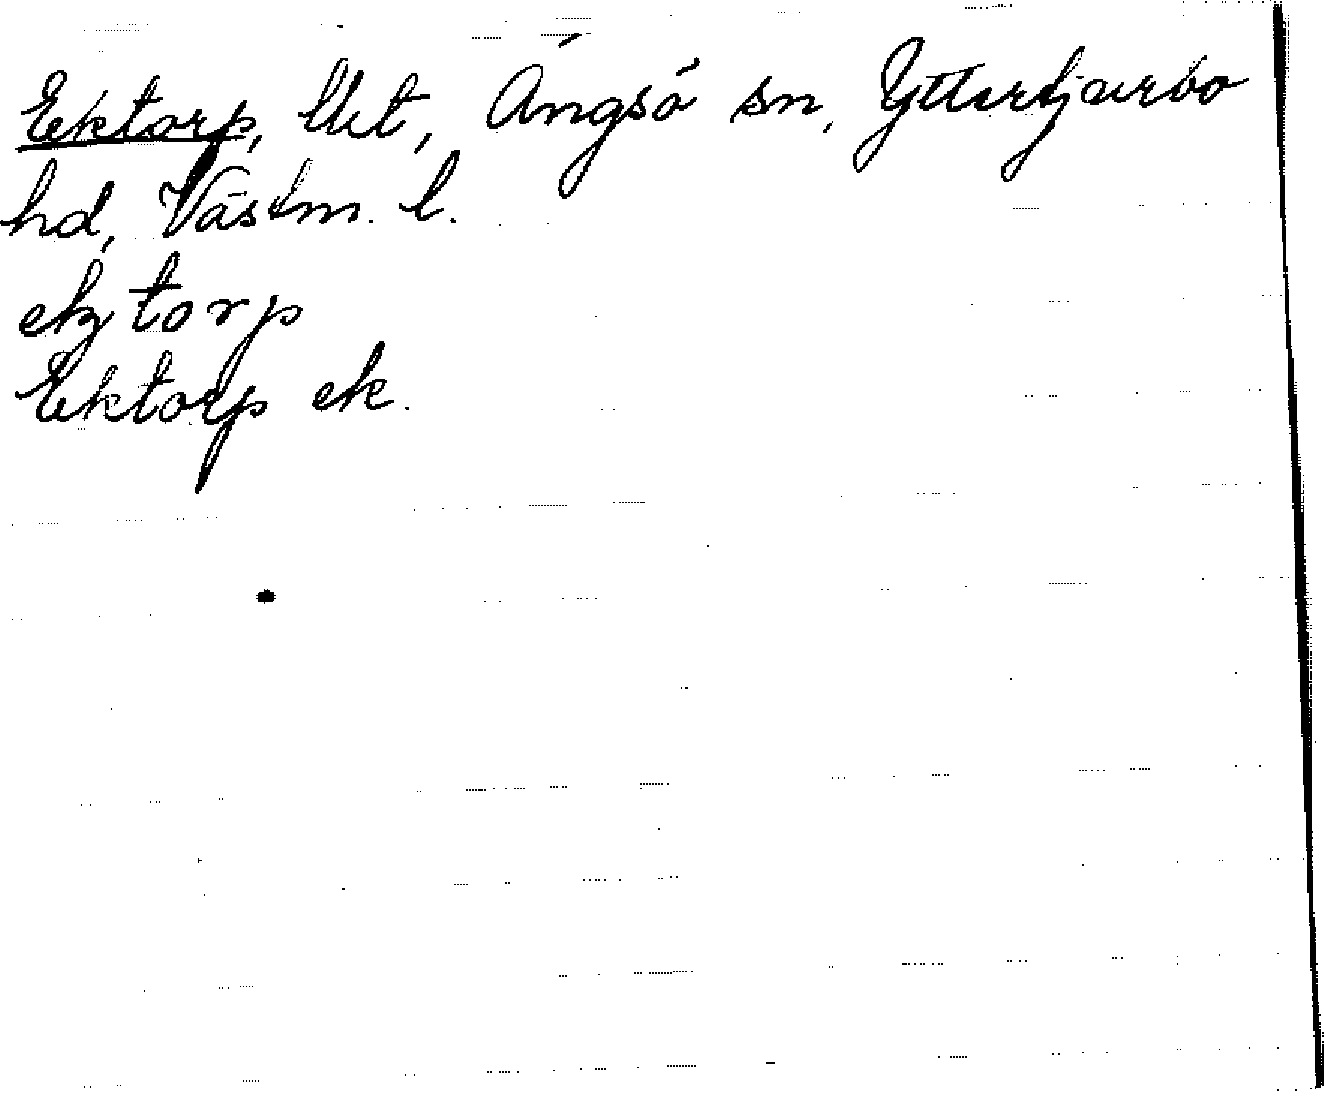 Ektorp, Utt, Ängsö sn, Yttertjurbo
hd, Västm. l.
ektorp
Ektorp ek.